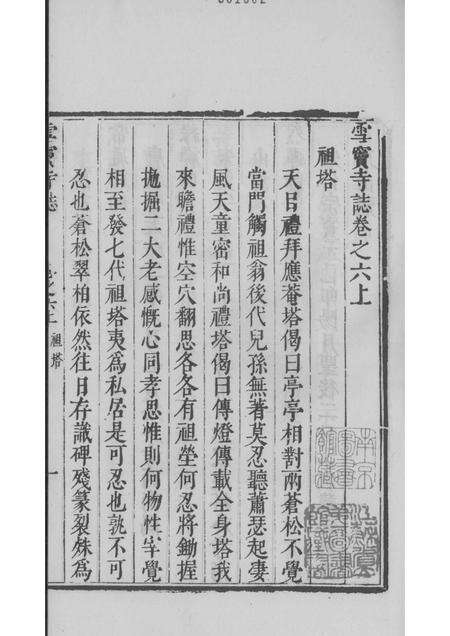 雪竇寺誌卷之六上
祖塔
天目禮拜應菴塔偈曰亭亭相對兩蒼松不覺
當門觸祖翁後代兒孫無著莫忍聽蕭瑟起凄
風天童密和尚禮塔偈曰傳燈傳載全身塔我
來瞻禮惟空穴翻思各各有祖塋何忍將鋤握
拖掘二大老感慨心同孝思惟則何物性宰覺
相至發七代祖塔夷為私居是可忍也孰不可
忍也蒼松翠柏依然往日存識碑殘篆裂殊為
雪竇寺誌 卷之六上 祖塔 一